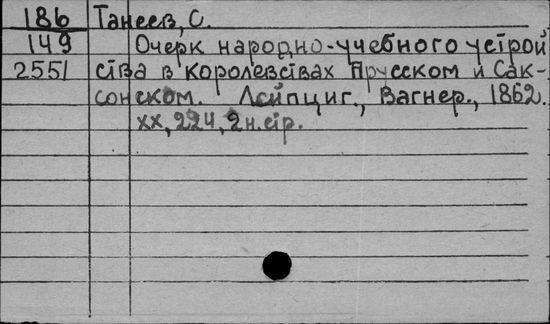 186 Танеев, С.
149 Очерк народно-учебного устрой
2551 ства в Королевствах Прусском и Сак-
сонском. Лейпциг., Вагнер., 1862.
XX, 224, 2 н. стр.